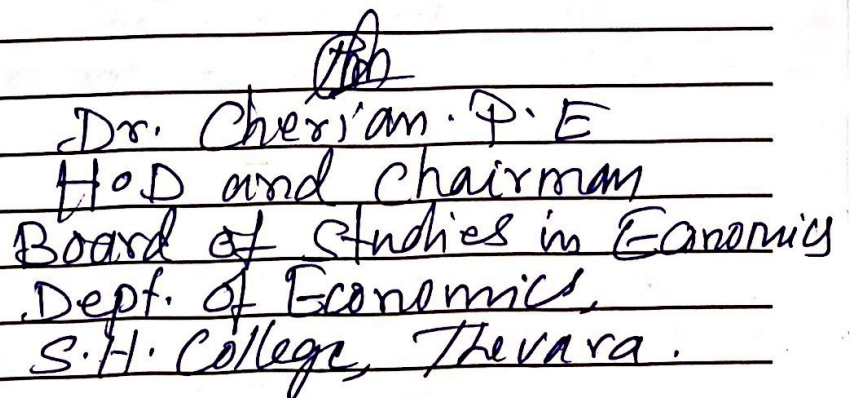 Dr. Cherian. P. E
HoD and Chairman
Board of Studies in Economics
Dept. of Economics,
S.H. College, Thevara.